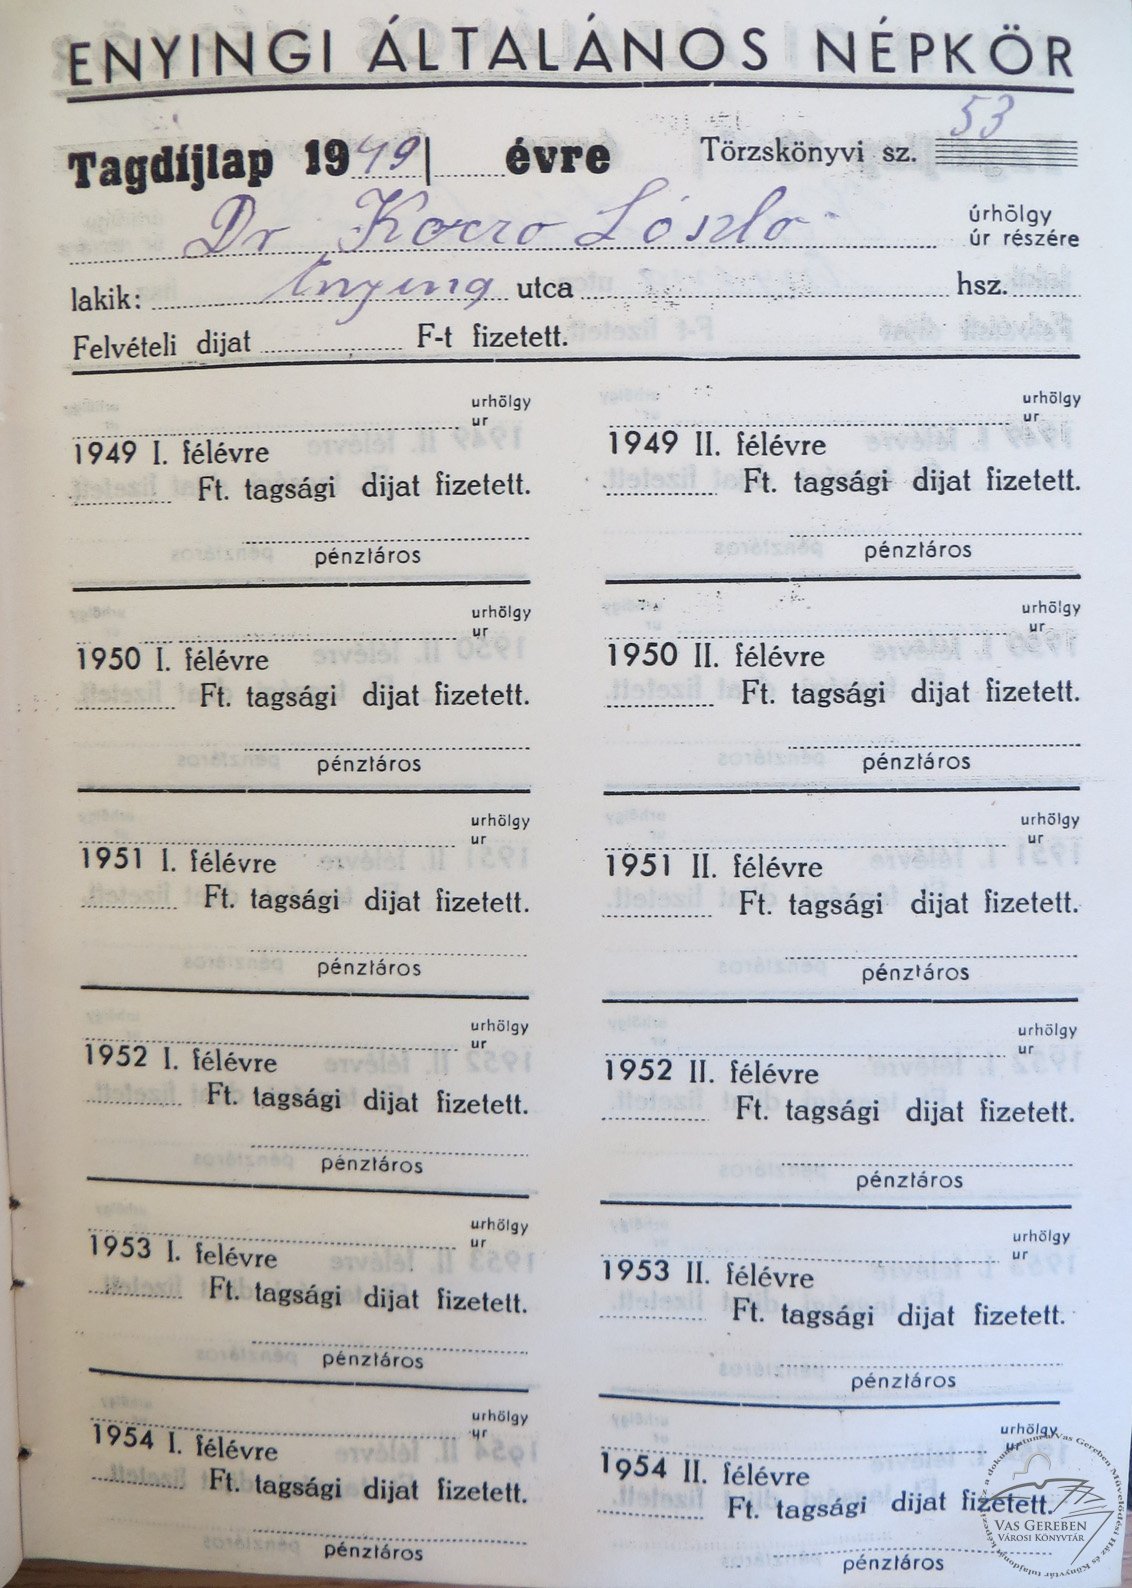 ENYINGI ÁLTALÁNOS NÉPKÖR
Tagdíjlap 1949 évre
Törzskönyvi sz. 53
Dr László úrhölgy
úr részére
lakik: Enying utca hsz.
Felvételi dijat F-t fizetett.
urhölgy
ur
1949 I. félévre
Ft. tagsági dijat fizetett.
pénztáros
urhölgy
ur
1949 II. félévre
Ft. tagsági dijat fizetett.
pénztáros
urhölgy
ur
1950 I. félévre
Ft. tagsági dijat fizetett.
pénztáros
urhölgy
ur
1950 II. félévre
Ft. tagsági dijat fizetett.
pénztáros
urhölgy
ur
1951 I. félévre
Ft. tagsági dijat fizetett.
pénztáros
urhölgy
ur
1951 II. félévre
Ft. tagsági dijat fizetett.
pénztáros
urhölgy
ur
1952 I. félévre
Ft. tagsági dijat fizetett.
pénztáros
urhölgy
ur
1952 II. félévre
Ft. tagsági dijat fizetett.
pénztáros
urhölgy
ur
1953 I. felévre
Ft. tagsági dijat fizetett.
pénztáros
urhölgy
ur
1953 II. félévre
Ft. tagsági dijat fizetett.
pénztáros
urhölgy
ur
1954 I. félévre
Ft. tagsági dijat fizetett.
pénztáros
urhölgy
ur
1954 II. félévre
Ft. tagsági dijat fizetett.
pénztáros
a dokumentum a Vas Gereben Művelődési Ház és Könyvtár tulajdonát képezi
VAS GEREBEN
VÁROSI KÖNYVTÁR